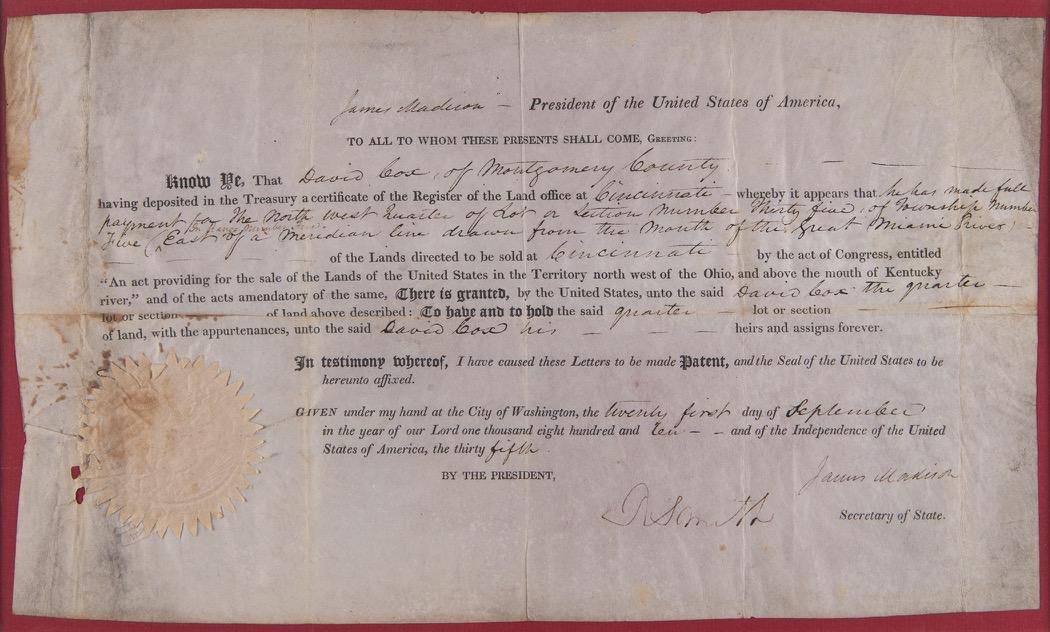 James Madison — President of the United States of America,
TO ALL TO WHOM THESE PRESENTS SHALL COME, GREETING:
Know Ye, That David Cox, of Montgomery County
having deposited in the Treasury a certificate of the Register of the Land office at Cincinnati — whereby it appears that he has made full
payment for the North west quarter of Lot or Section Number Thirty five, of Township Number
Five (East of a Meridian line drawn from the Mouth of the Great Miami River) —
of the Lands directed to be sold at Cincinnati — by the act of Congress, entitled
“An act providing for the sale of the Lands of the United States in the Territory north west of the Ohio, and above the mouth of Kentucky
river,” and of the acts amendatory of the same, There is granted, by the United States, unto the said David Cox the quarter —
lot or section of land above described: To have and to hold the said quarter — lot or section
of land, with the appurtenances, unto the said David Cox his — — — heirs and assigns forever.
In testimony whereof, I have caused these Letters to be made Patent, and the Seal of the United States to be
hereunto affixed.
GIVEN under my hand at the City of Washington, the twenty first day of September
in the year of our Lord one thousand eight hundred and ten — — and of the Independence of the United
States of America, the thirty fifth.
BY THE PRESIDENT,
James Madison
R Smith Secretary of State.